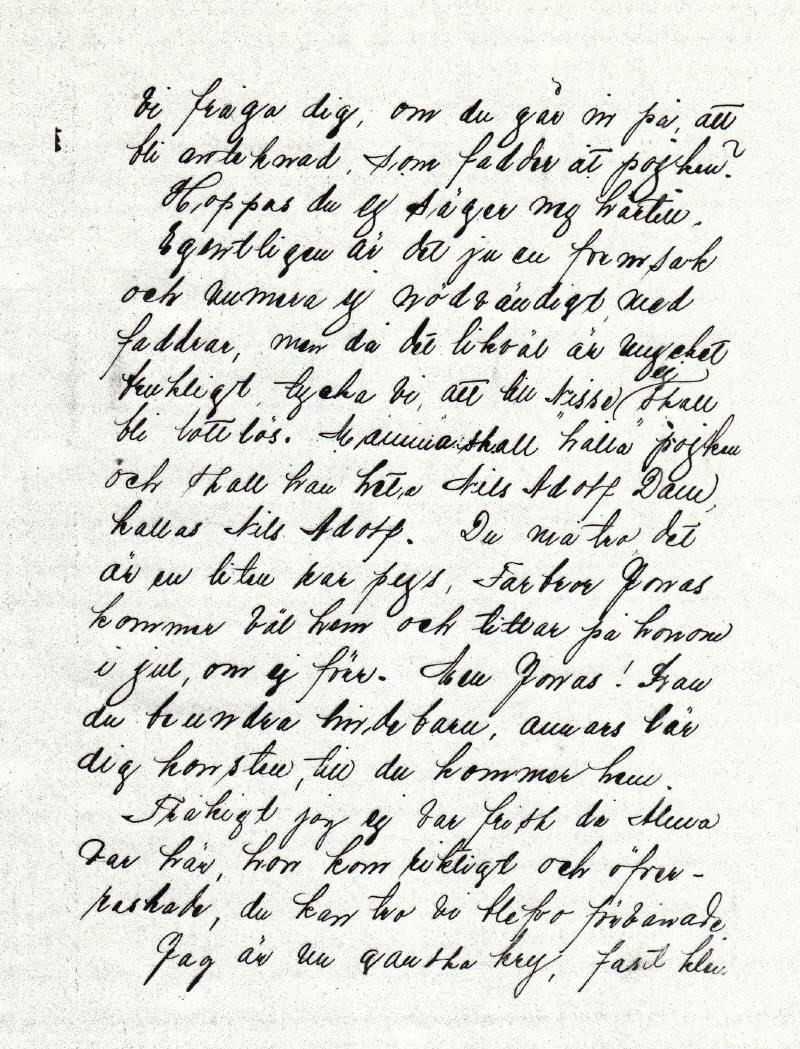 Vi fråga dig, om du går in på, att
bli antecknad, som fadder åt pojken?
Hoppas du ej säger nej härtill.
Egentligen är det ju en fornsak
och numera ej nödvändigt med
faddrar, men då det likväl är mycket
brukligt, tycka vi, att lill Nisse ej skall
bli lottlös. Mamma skall "hålla" pojken
och skall han heta Nils Adolf Dam,
kallas Nils Adolf. Du må tro det
är en liten rar pojs, Farbror Jonas
kommer väl hem och tittar på honom
i jul, om ej förr. Men Jonas! Kan
du beundra lindebarn, annars lär
dig konsten, till du kommer hem.
Tråkigt jag ej var frisk då Alma
var här, hon kom riktigt och öfver-
raskade, du kan tro vi blefvo förvånade
Jag är nu ganska kry, fast klen